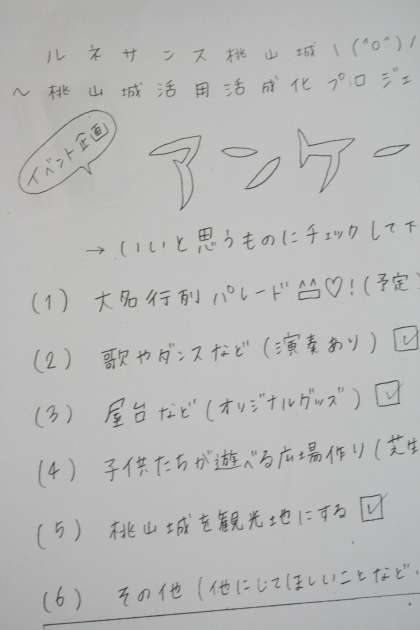 ルネサンス桃山城\(^o^)/
〜桃山城活用活成化プロジェ
イベント企画
アンケー
→いいと思うものにチェックして下
(1) 大名行列パレード^^♡!(予定)
(2) 歌やダンスなど(演奏あり)☑
(3) 屋台など(オリジナルグッズ)☑
(4) 子供たちが遊べる広場作り(芝生
(5) 桃山城を観光地にする☑
(6) その他(他にしてほしいことなど